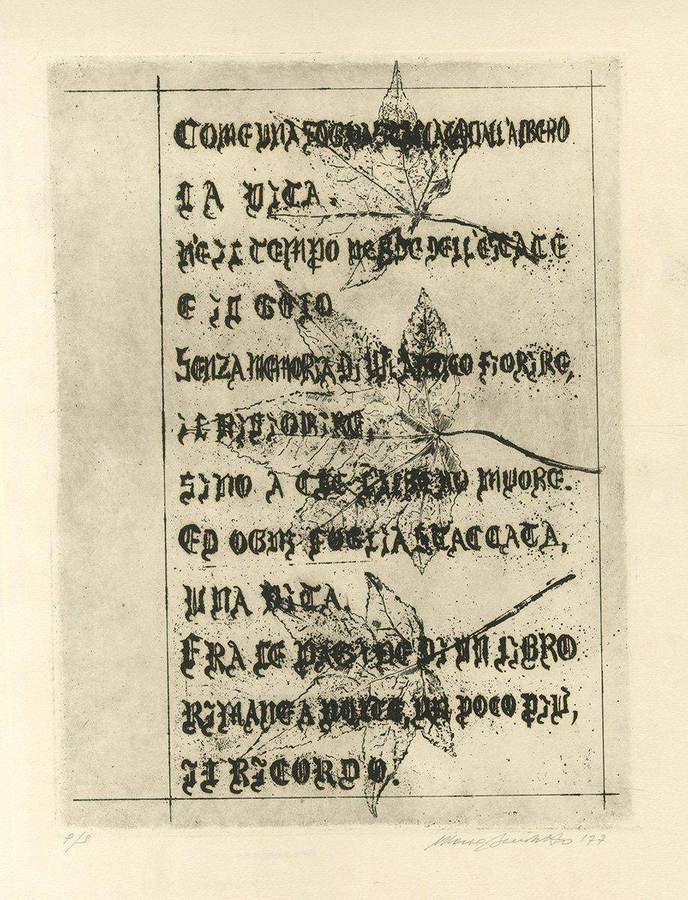 COME UNA FOGLIA STACCATA DALL'ALBERO
LA VITA.
NEL TEMPO VERDE DELL'ESTATE
E IN GELO
SENZA MEMORIA DI UN ANTICO FIORIRE,
IL RIFIORIRE,
SINO A CHE L'ALBERO MUORE.
ED OGNI FOGLIA STACCATA,
UNA VITA.
FRA LE PAGINE DI UN LIBRO
RIMANE A VOLTE, UN POCO PIÙ,
IL RICORDO.
'77